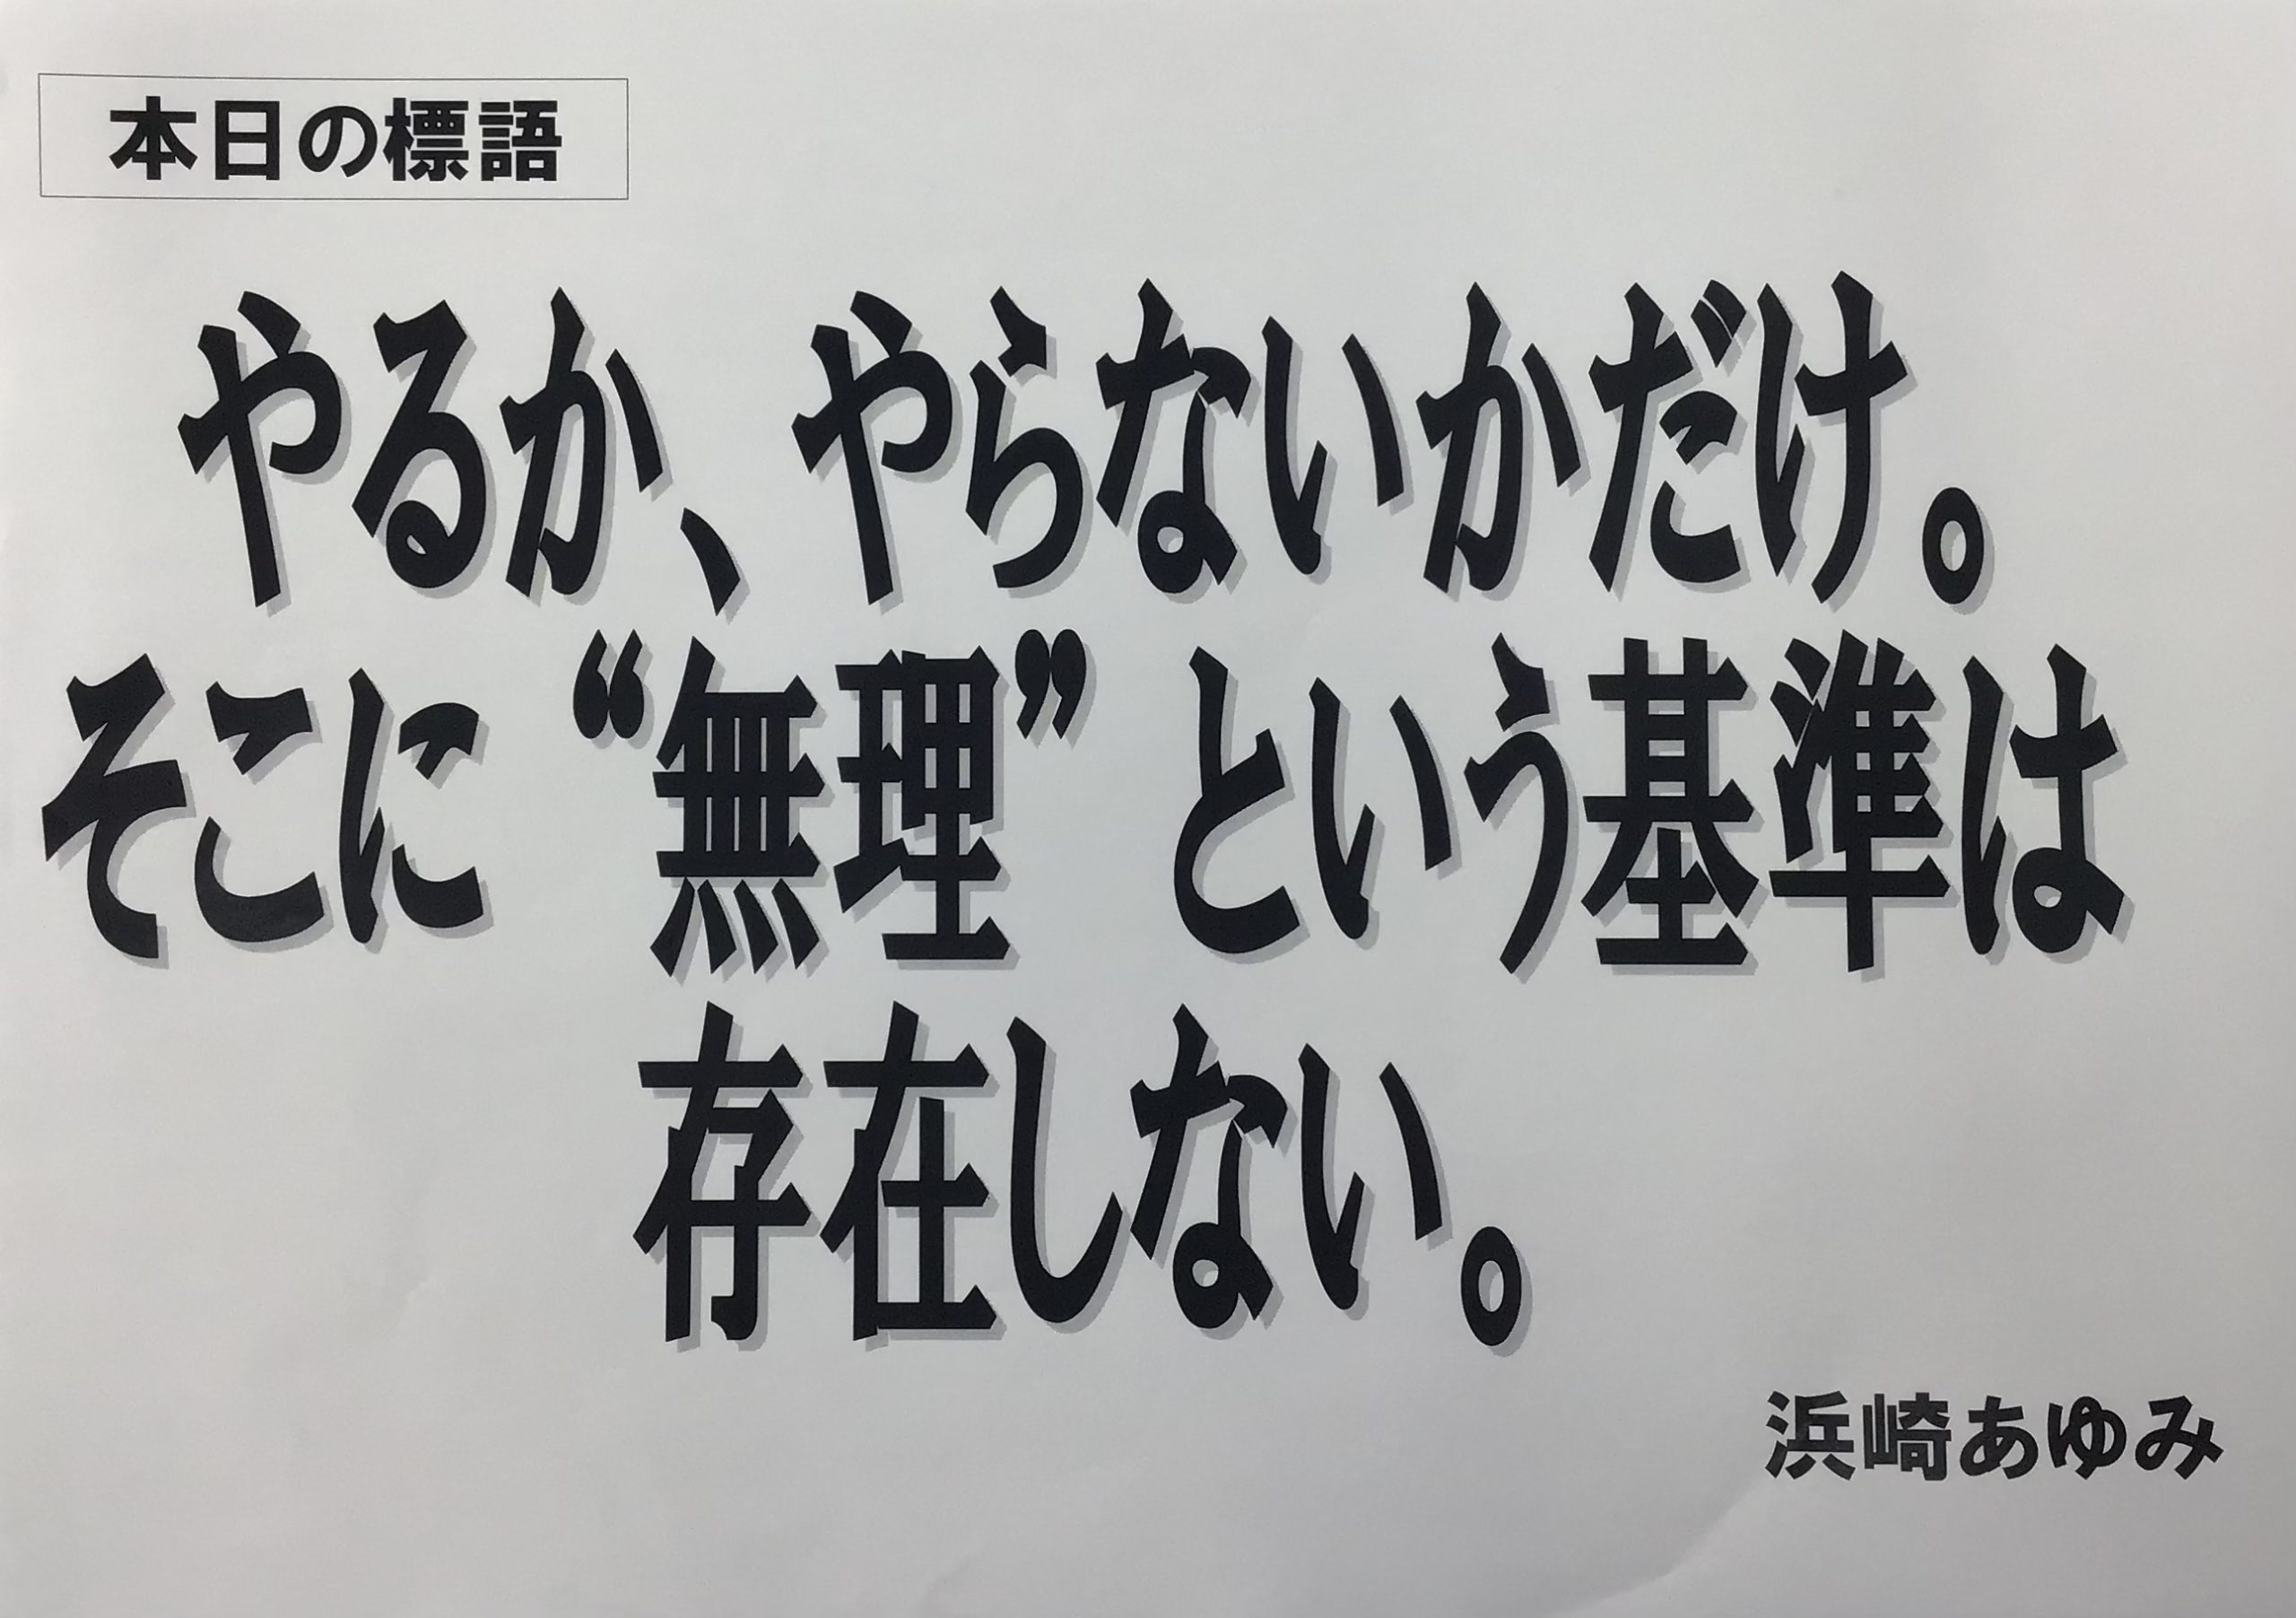 本日の標語
やるか、やらないかだけ。
そこに“無理”という基準は
存在しない。
浜崎あゆみ